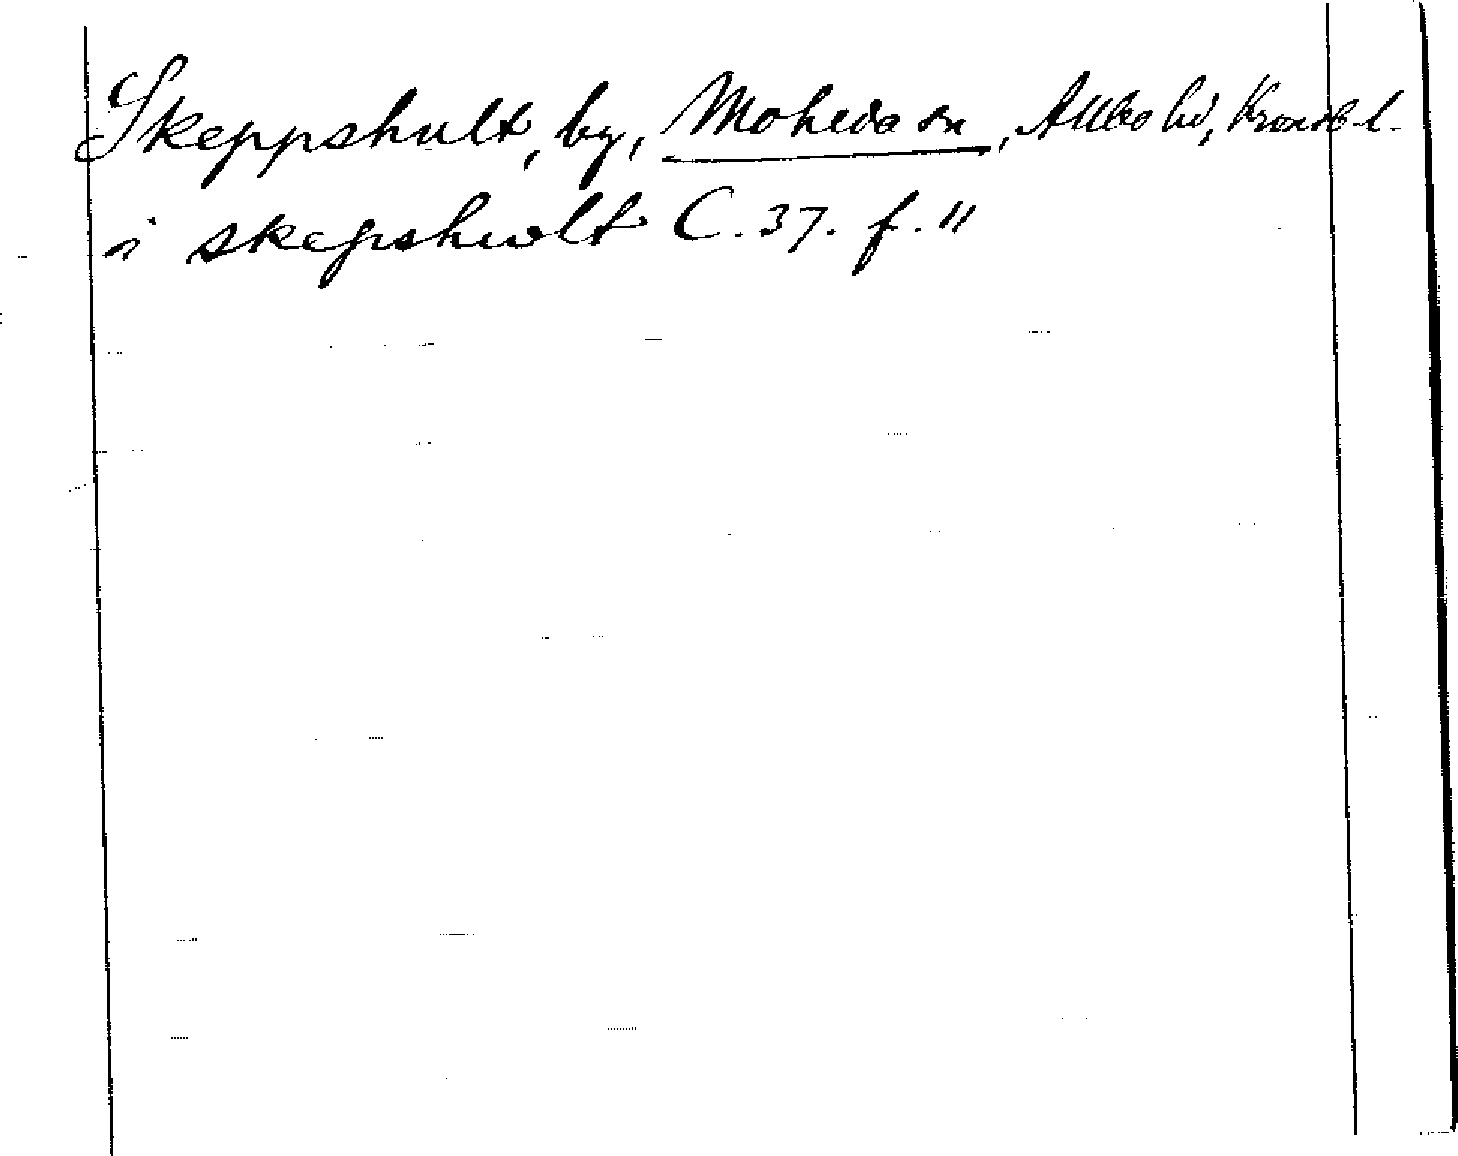 Skeppshult, by, Moheda sn, Allbo hd, Kronob l.
i skepshwlt C. 37. f. 11